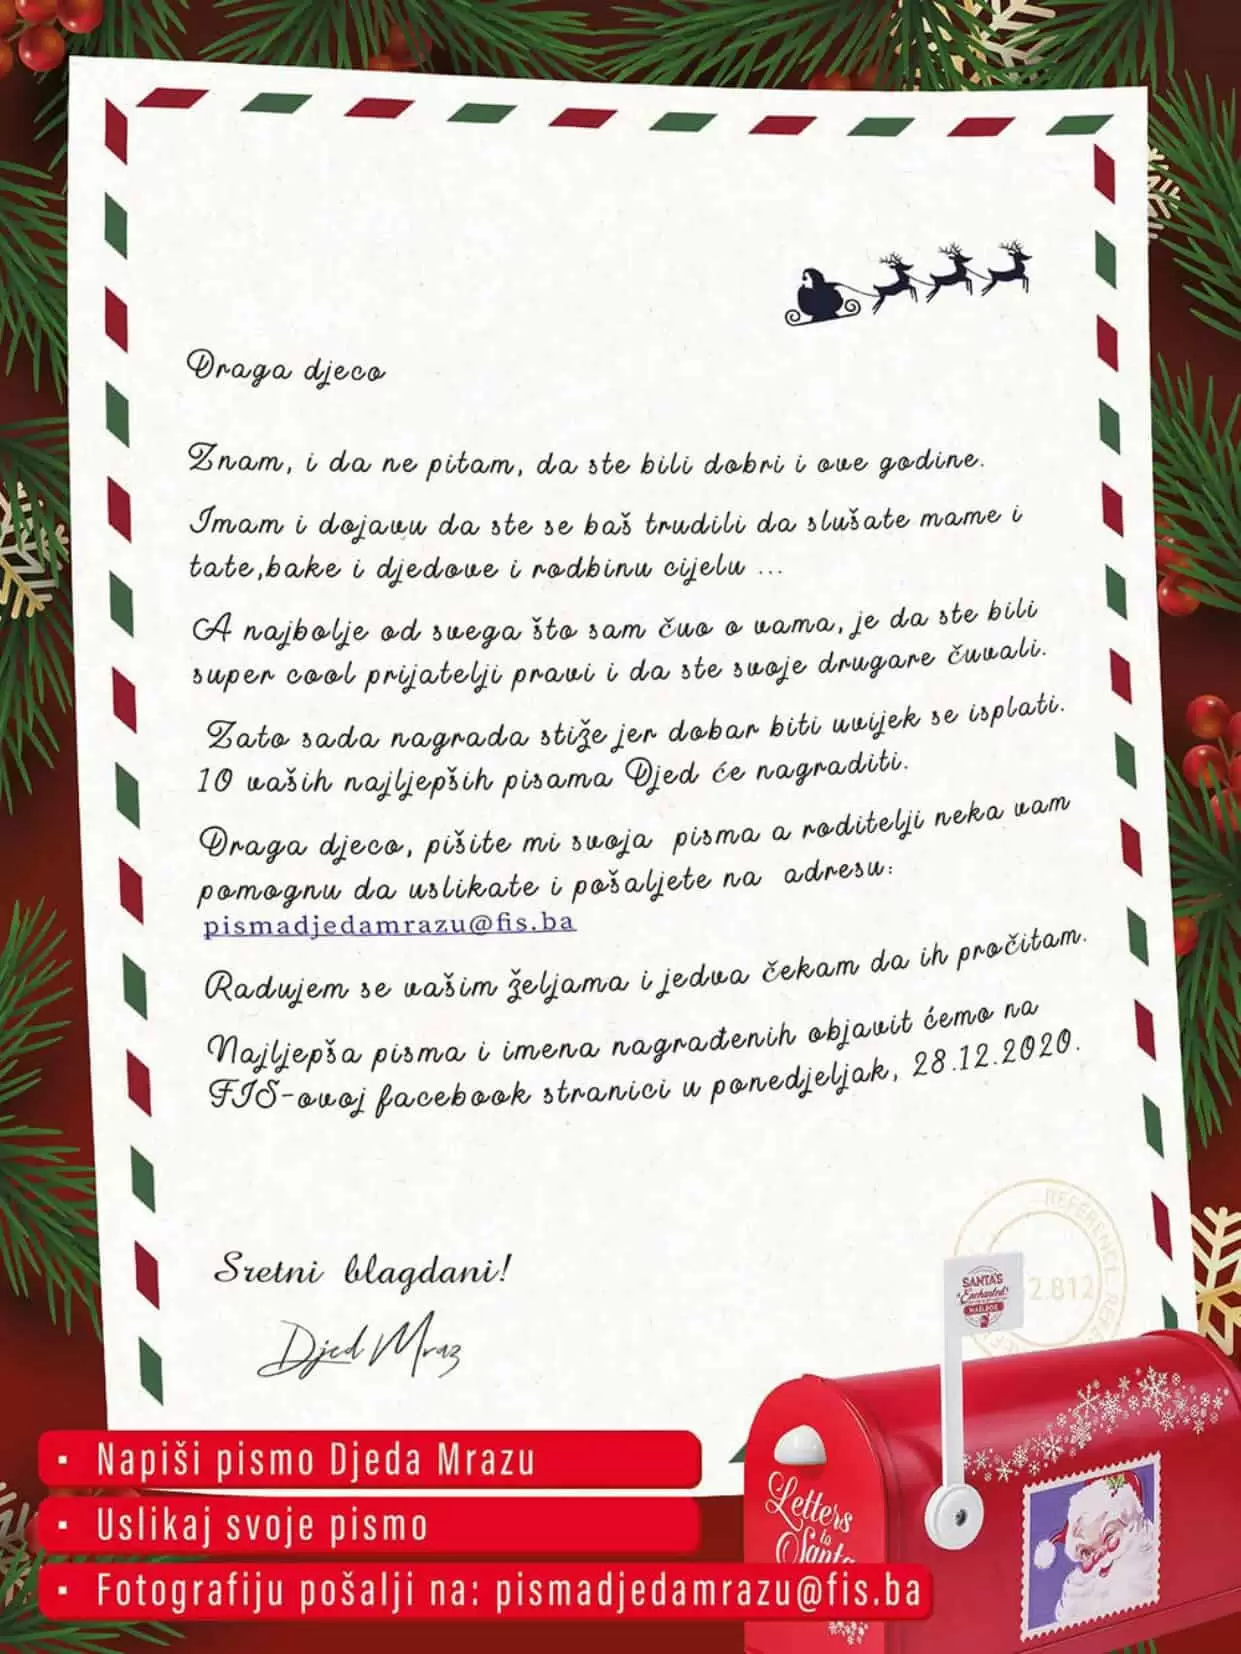 Draga djeco
Znam, i da ne pitam, da ste bili dobri i ove godine.
Imam i dojavu da ste se baš trudili da slušate mame i
tate,bake i djedove i rodbinu cijelu ...
A najbolje od svega što sam čuo o vama, je da ste bili
super cool prijatelji pravi i da ste svoje drugare čuvali.
Zato sada nagrada stiže jer dobar biti uvijek se isplati.
10 vaših najljepših pisama Djed će nagraditi.
Draga djeco, pišite mi svoja pisma a roditelji neka vam
pomognu da uslikate i pošaljete na adresu:
pismadjedamrazu@fis.ba
Radujem se vašim željama i jedva čekam da ih pročitam.
Najljepša pisma i imena nagrađenih objavit ćemo na
FIS-ovoj facebook stranici u ponedjeljak, 28.12.2020.
Sretni blagdani!
Djed Mraz
REFERENCI
2.812
SANTA'S
Enchanted
MAILBOX
Letters
to
Santa
▪ Napiši pismo Djeda Mrazu
▪ Uslikaj svoje pismo
▪ Fotografiju pošalji na: pismadjedamrazu@fis.ba